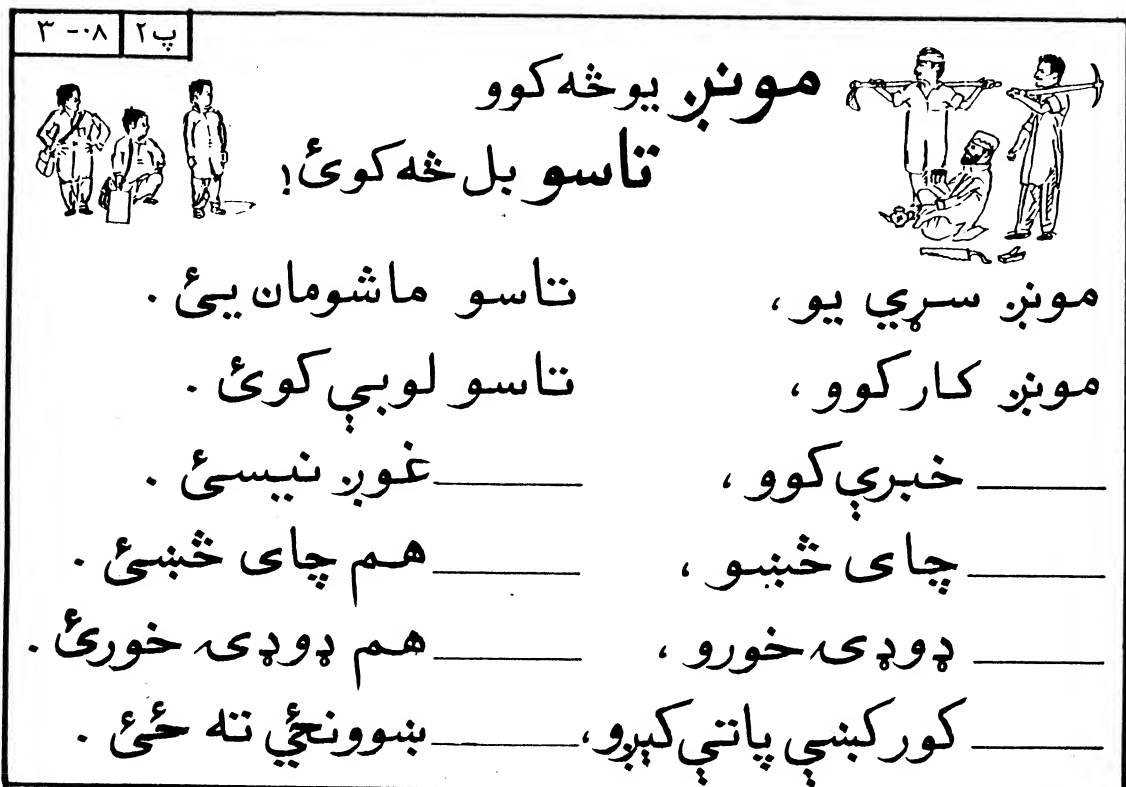 پ۲ ۳ -۰۸
مونږ یو څه کوو
تاسو بل څه کوئ!
مونږ سړي یو ، تاسو ماشومان یئ .
مونږ کار کوو ، تاسو لوبې کوئ .
____ خبرې کوو ، ____ غوږ نیسئ .
____ چای څښو ، ____ هم چای څښئ .
____ ډوډۍ خورو ، ____ هم ډوډۍ خورئ .
____ کور کښې پاتې کېږو، ____ ښوونځي ته ځئ .